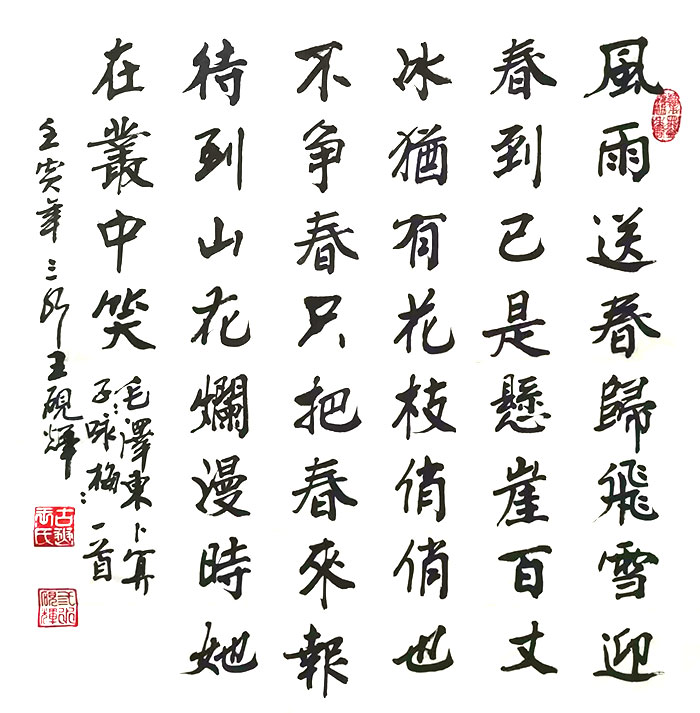 風雨送春歸飛雪迎
春到已是懸崖百丈
冰猶有花枝俏俏也
不争春只把春來報
待到山花爛漫時她
在叢中笑
毛澤東卜算
子咏梅一首
壬寅年三 王硯輝